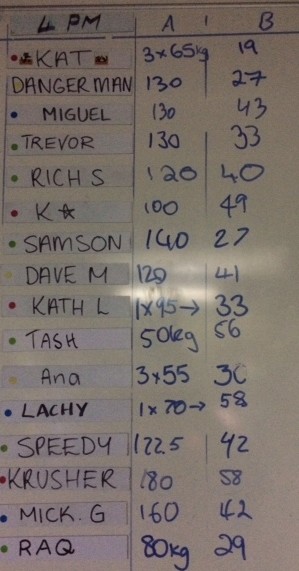 4 PM A B
KAT 3x65kg 19
DANGERMAN 130 27
MIGUEL 130 43
TREVOR 130 33
RICH S 120 40
K☆ 100 49
SAMSON 140 27
DAVE M 120 41
KATH L 1x95→ 33
TASH 50kg 56
Ana 3x55 30
LACHY 1x70→ 58
SPEEDY 122.5 42
KRUSHER 180 58
MICK. G 160 42
RAQ 80kg 29